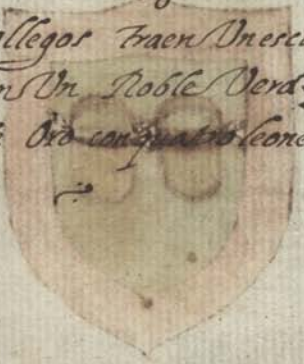 llegos Traen Un esc
n Un Roble Verd
Oro con quatro leone